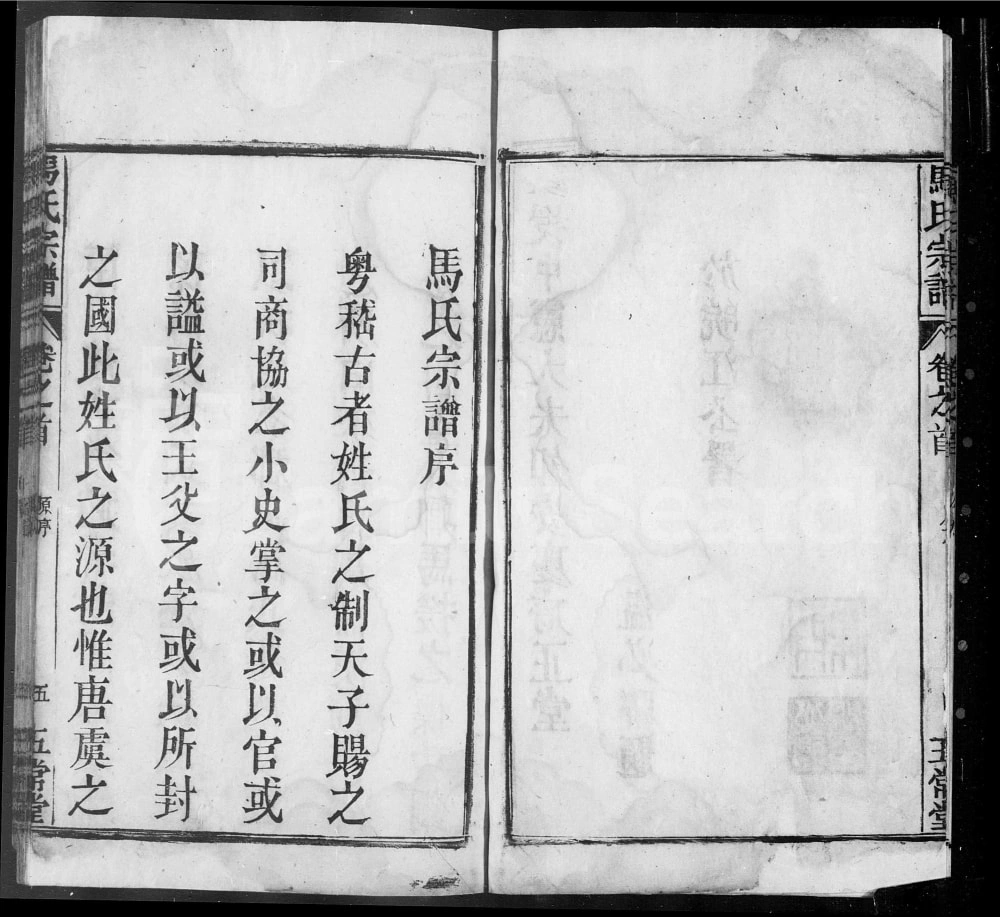 馬氏宗譜
卷之首
五常堂
馬氏宗譜序
粤稽古者姓氏之制天子賜之
司商協之小史掌之或以官或
以謚或以王父之字或以所封
之國此姓氏之源也惟唐虞之
馬氏宗譜
卷之首
原序
五
五常堂